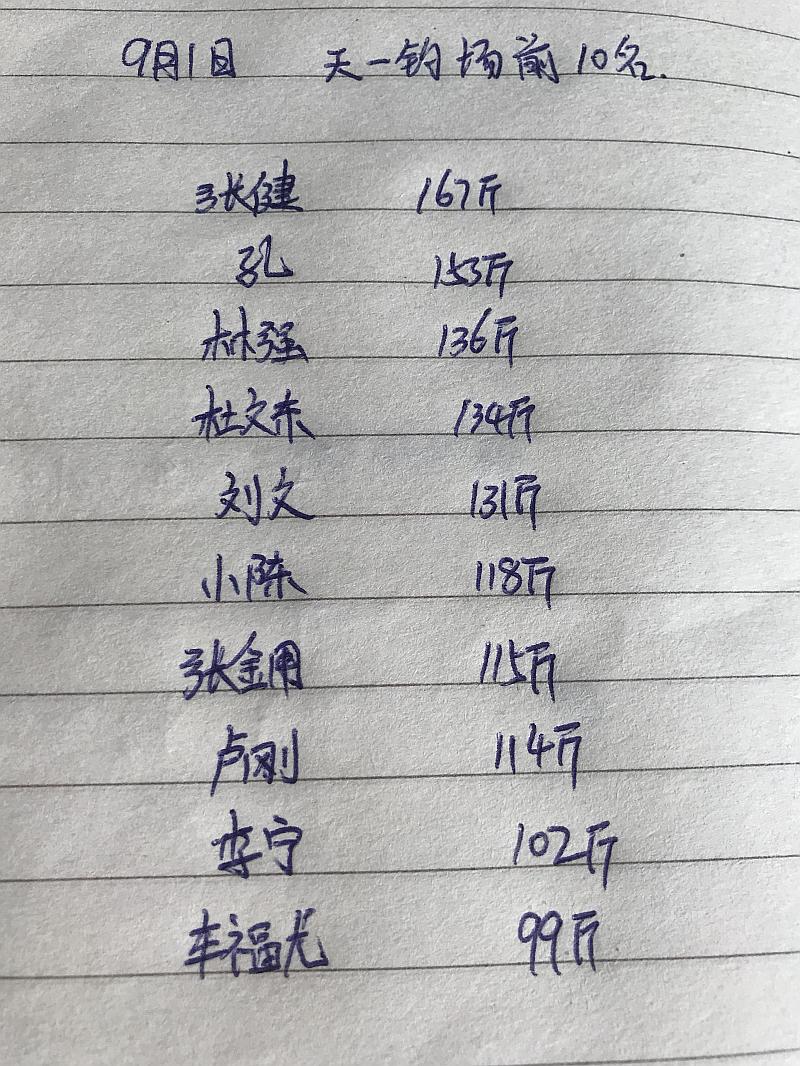 9月1日 天一钓场前10名.
张健 167斤
孔 153斤
林强 136斤
杜文东 134斤
刘文 131斤
小陈 118斤
张金用 115斤
卢刚 114斤
李宁 102斤
车福龙 99斤